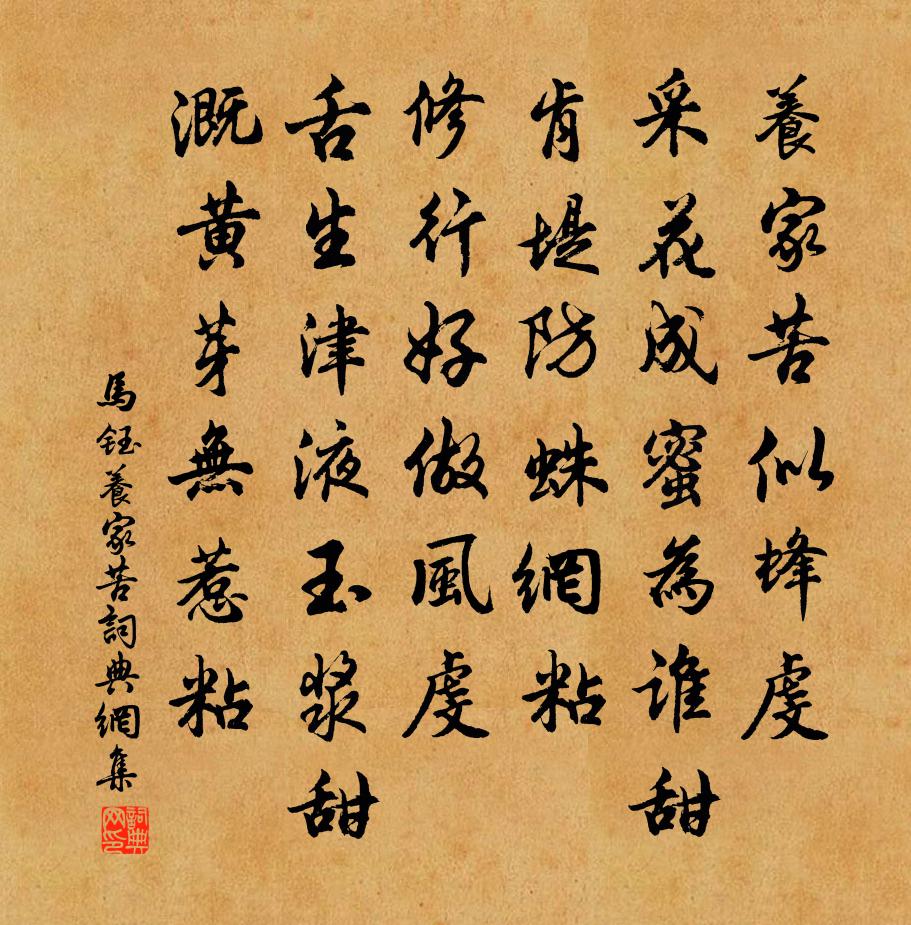 養家苦似蜂虔
采花成蜜為誰甜
肯堤防蛛網粘
修行好做風虔
舌生津液玉漿甜
溉黃芽無惹粘
馬鈺養家苦詞典網集
詞典网印